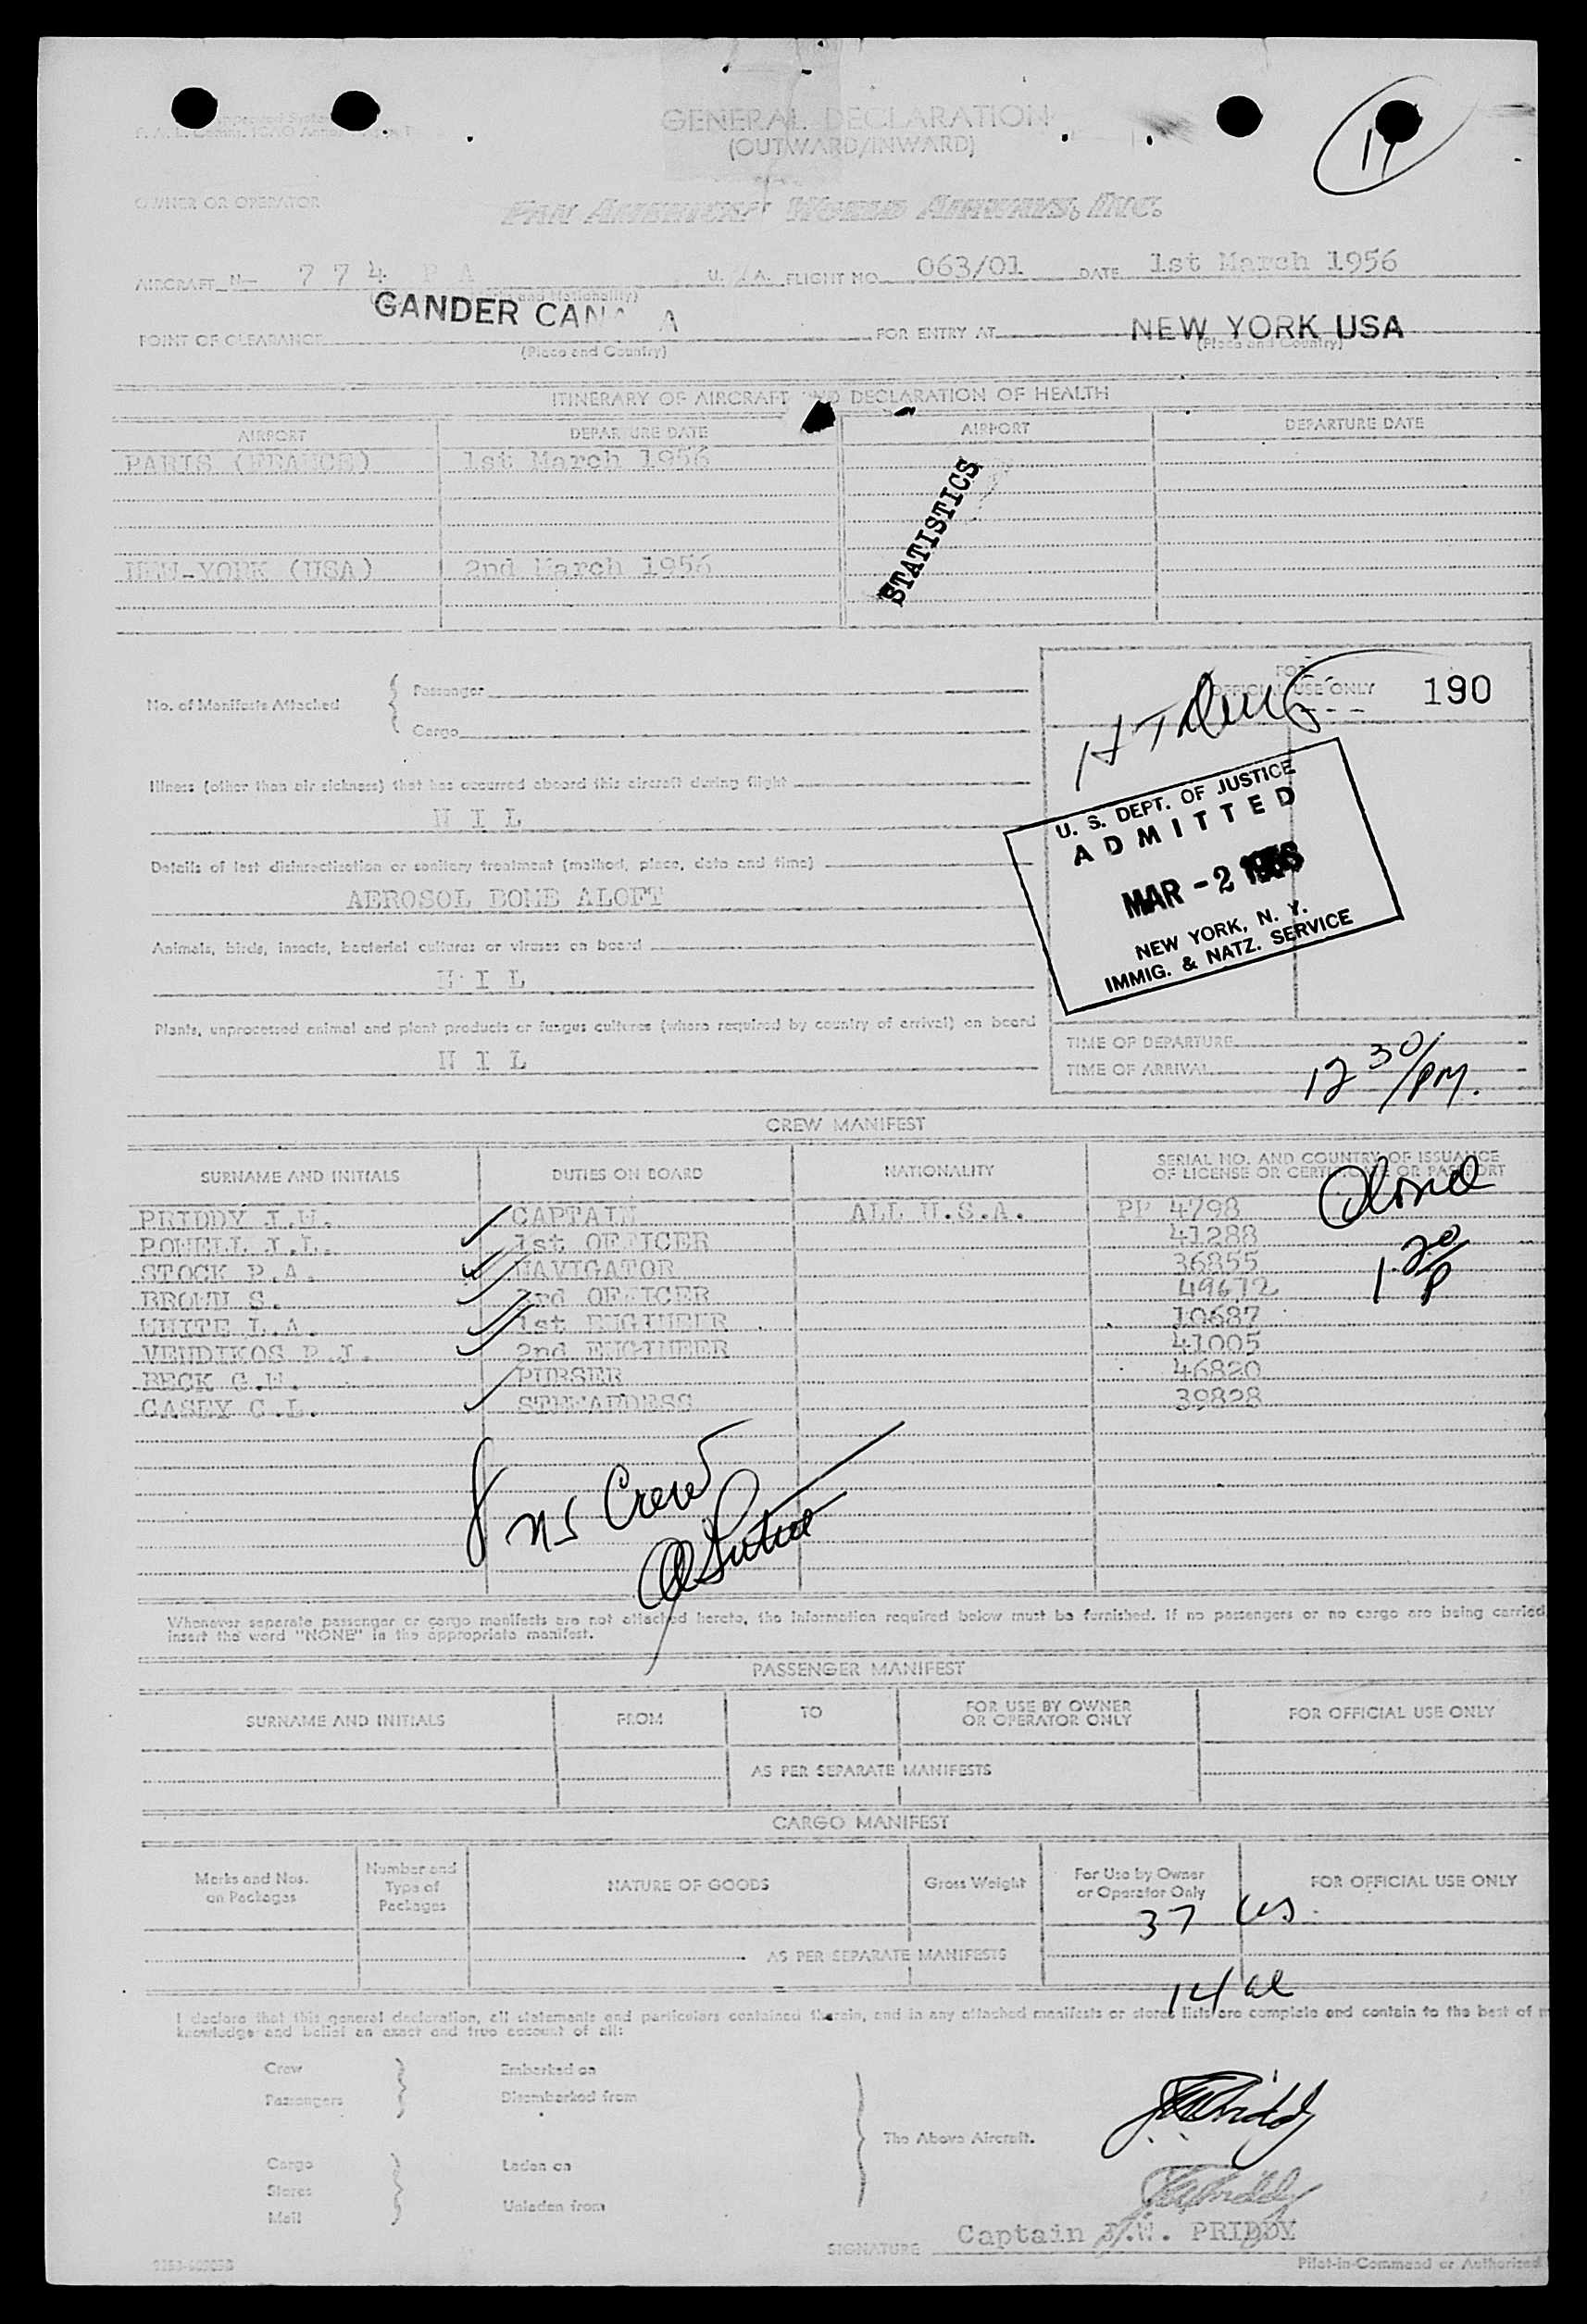 GENERAL DECLARATION
(OUTWARD/INWARD)
OWNER OR OPERATOR
PAN AMERICAN WORLD AIRWAYS, INC.
AIRCRAFT N- 774 P A U. S. A. FLIGHT NO. 063/01 DATE 1st March 1956
POINT OF CLEARANCE GANDER CANADA FOR ENTRY AT NEW YORK USA
(Place and Country) (Place and Country)
ITINERARY OF AIRCRAFT AND DECLARATION OF HEALTH
AIRPORT DEPARTURE DATE AIRPORT DEPARTURE DATE
PARIS (FRANCE) 1st March 1956
STATISTICS
NEW-YORK (USA) 2nd March 1956
No. of Manifests Attached { Passenger
Cargo
FOR
OFFICIAL USE ONLY 190
Illness (other than air sickness) that has occurred aboard this aircraft during flight
N I L
U. S. DEPT. OF JUSTICE
ADMITTED
MAR - 2 1956
NEW YORK, N. Y.
IMMIG. & NATZ. SERVICE
Details of last disinsectization or sanitary treatment (method, place, date and time)
AEROSOL BOMB ALOFT
Animals, birds, insects, bacterial cultures or viruses on board
N I L
Plants, unprocessed animal and plant products or fungus cultures (where required by country of arrival) on board
N I L
TIME OF DEPARTURE
TIME OF ARRIVAL 12 30/PM.
CREW MANIFEST
SURNAME AND INITIALS DUTIES ON BOARD NATIONALITY SERIAL NO. AND COUNTRY OF ISSUANCE
OF LICENSE OR CERTIFICATE OR PASSPORT
PRIDDY J.W. CAPTAIN ALL U.S.A. PP 4798
POWELL J.L. 1st OFFICER 41288
STOCK P.A. NAVIGATOR 36855
BROWN S. 3rd OFFICER 49672
WHITE L.A. 1st ENGINEER 10687
VENDIKOS P.J. 2nd ENGINEER 41005
BECK G.W. PURSER 46820
CASEY C.L. STEWARDESS 39828
1 20/P
8 US Crew
Whenever separate passenger or cargo manifests are not attached hereto, the information required below must be furnished. If no passengers or no cargo are being carried
insert the word "NONE" in the appropriate manifest.
PASSENGER MANIFEST
SURNAME AND INITIALS FROM TO FOR USE BY OWNER
OR OPERATOR ONLY FOR OFFICIAL USE ONLY
AS PER SEPARATE MANIFESTS
CARGO MANIFEST
Marks and Nos.
on Packages Number and
Type of
Packages NATURE OF GOODS Gross Weight For Use by Owner
or Operator Only FOR OFFICIAL USE ONLY
37 US
AS PER SEPARATE MANIFESTS
14 al
I declare that this general declaration, all statements and particulars contained therein, and in any attached manifests or stores lists are complete and contain to the best of
knowledge and belief an exact and true account of all:
Crew Embarked on
Passengers Disembarked from
The Above Aircraft.
JWPriddy
Cargo Laden on
Stores
Mail Unladen from
JWPriddy
Captain J.W. PRIDDY
SIGNATURE
Pilot-in-Command or Authorized